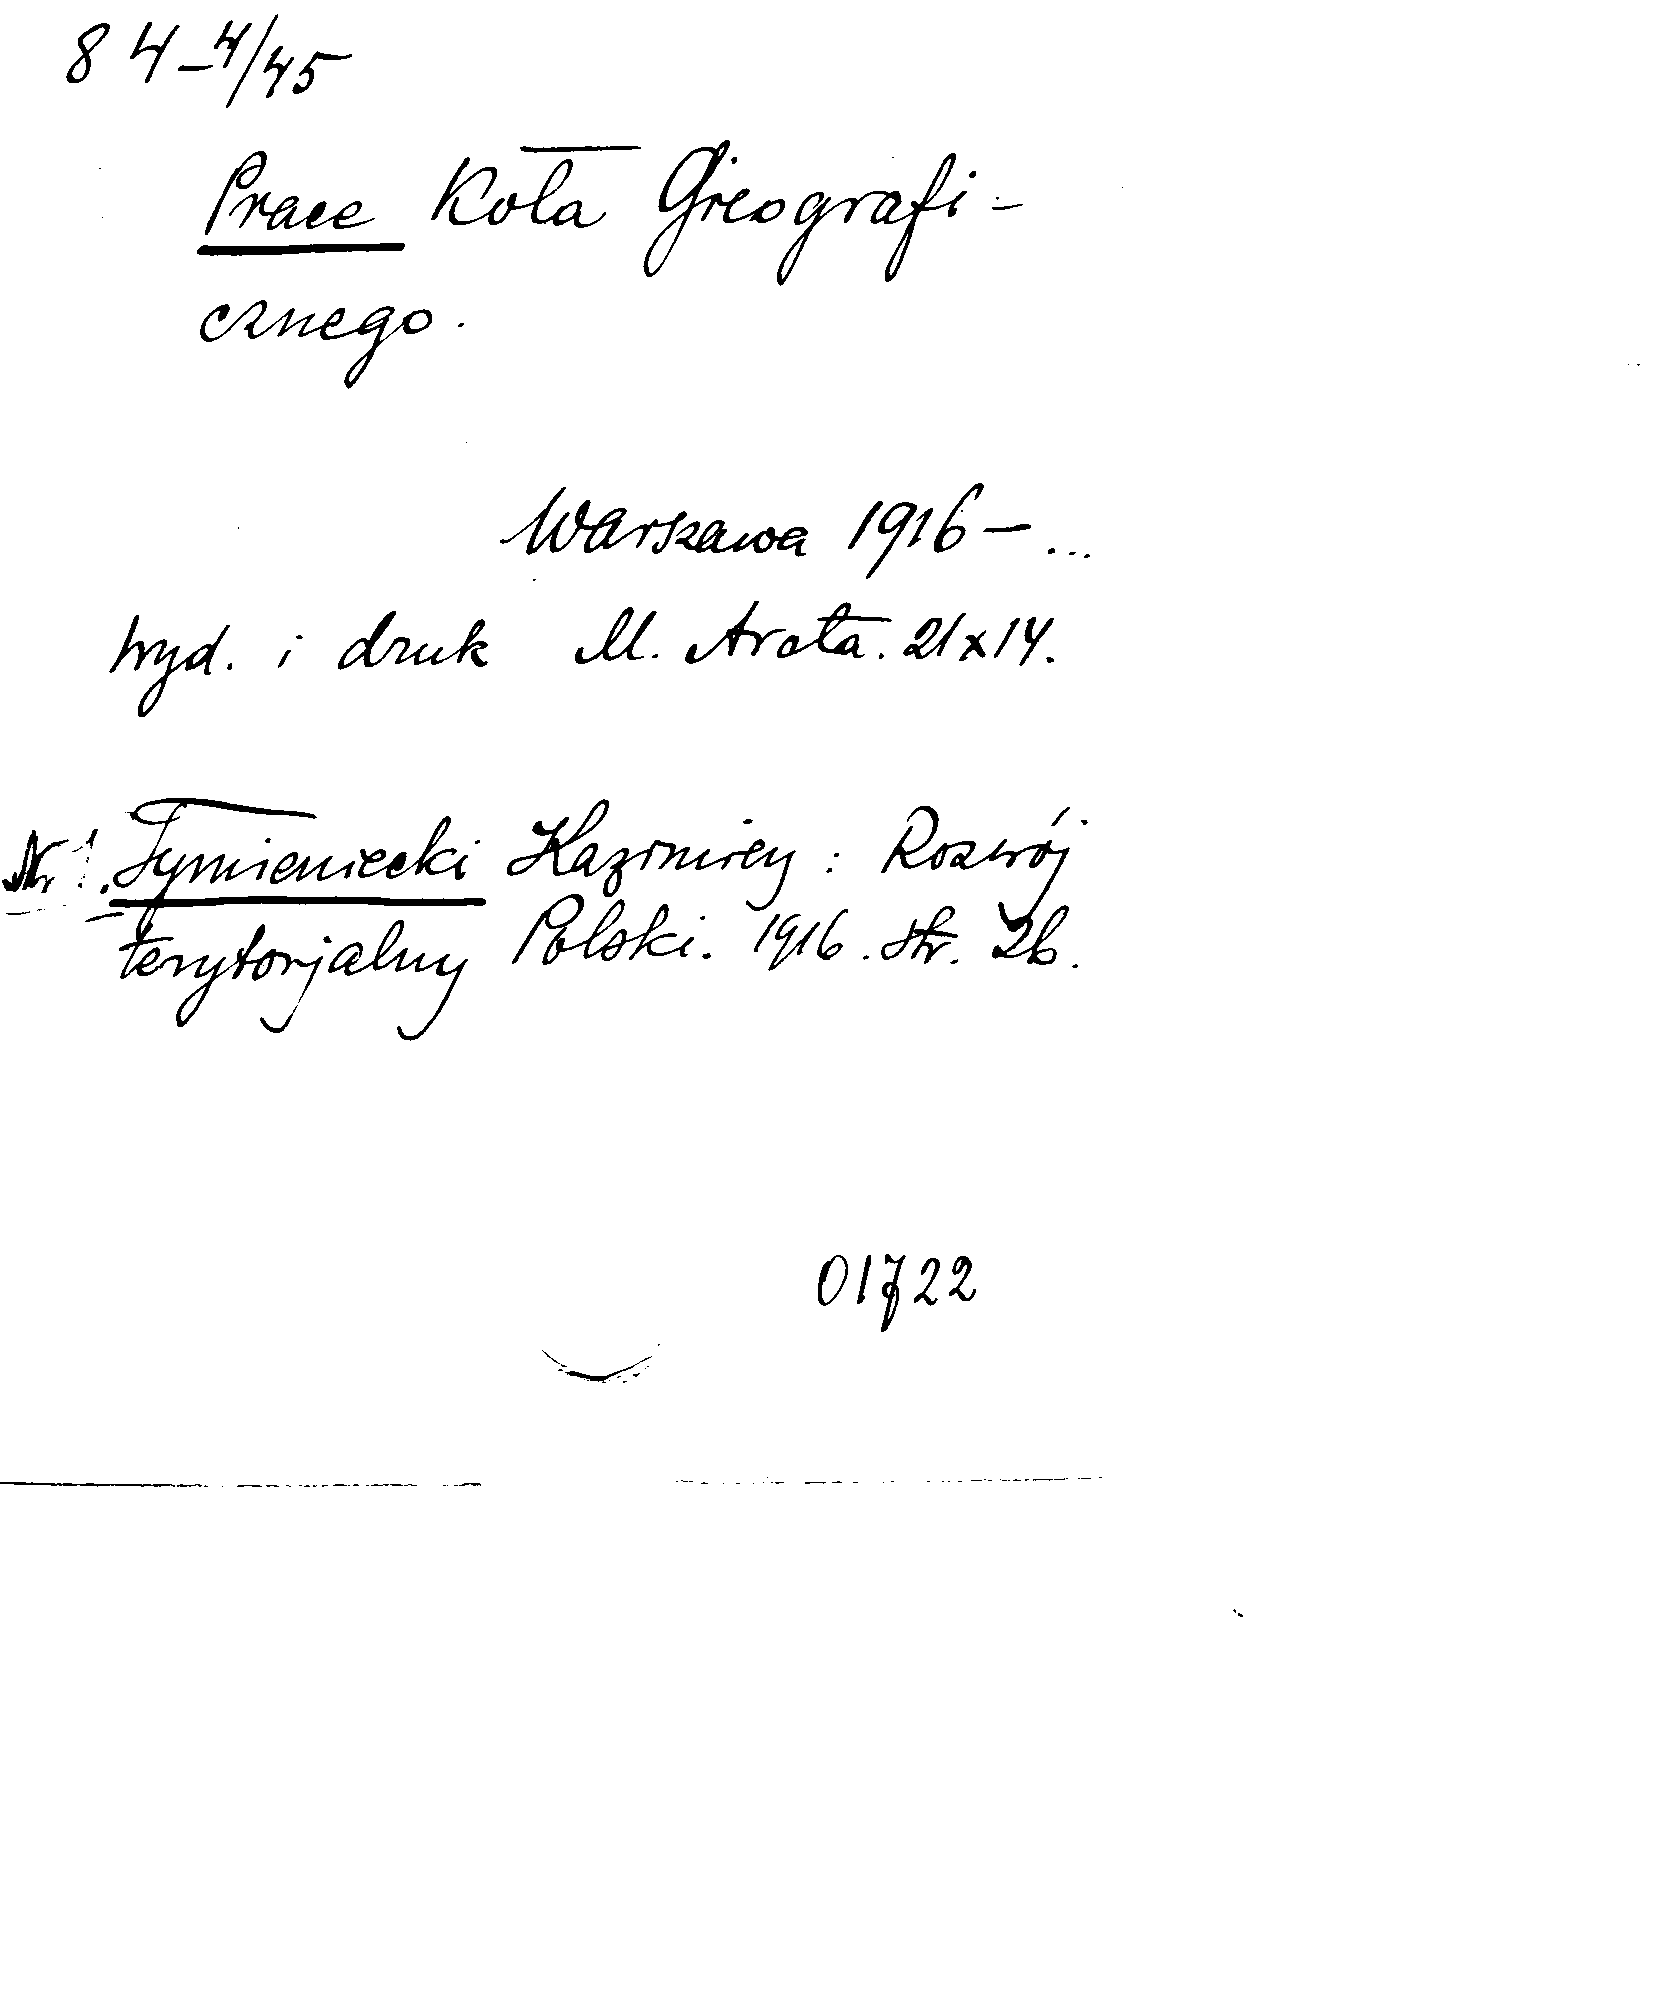 84-4/45
Prace Koła Geografi-
cznego.
Warszawa 1916-...
wyd. i druk M. Arcta. 21x14.
Nr 1. Tymieniecki Kazimierz: Rozwój
terytorjalny Polski. 1916. str. 26.
01722